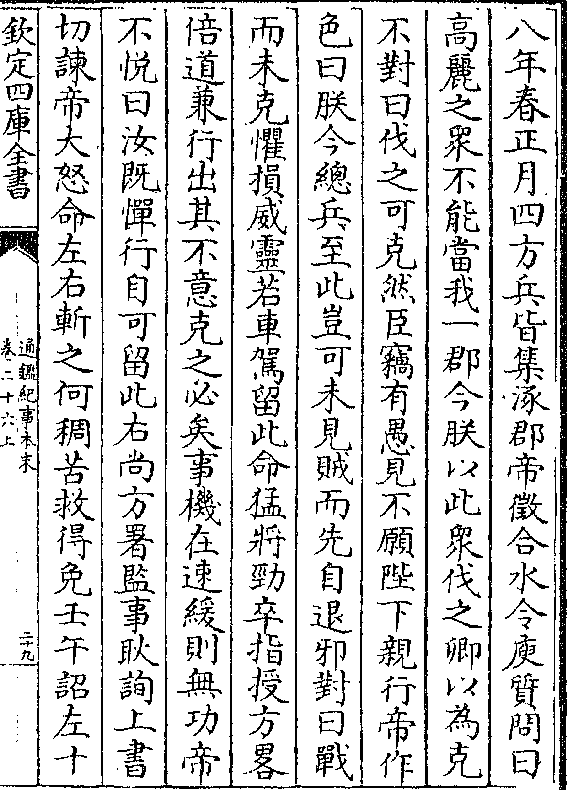 八年春正月四方兵皆集涿郡帝徵合水令庾質問曰
高麗之衆不能當我一郡今朕以此衆伐之卿以為克
不對曰伐之可克然臣竊有愚見不願陛下親行帝作
色曰朕今總兵至此豈可未見賊而先自退邪對曰戰
而未克懼損威靈若車駕留此命猛將勁卒指授方畧
倍道兼行出其不意克之必矣事機在速緩則無功帝
不悦曰汝既憚行自可留此右尚方署監事耿詢上書
切諫帝大怒命左右斬之何稠苦救得免壬午詔左十
欽定四庫全書
通鑑紀事本末
卷二十六上
二十九